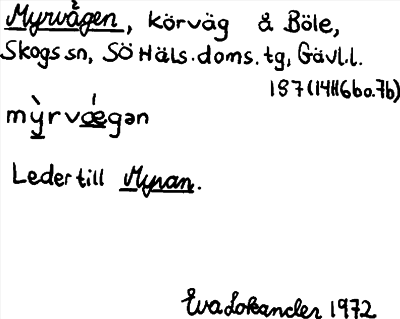 Myrvägen, körväg å Böle,
Skogs sn, Sö Häls. doms. tg, Gävl.l.
187 (14H6b o. 7b)
mỳrvǽgən
Leder till Myran.
Eva 1972